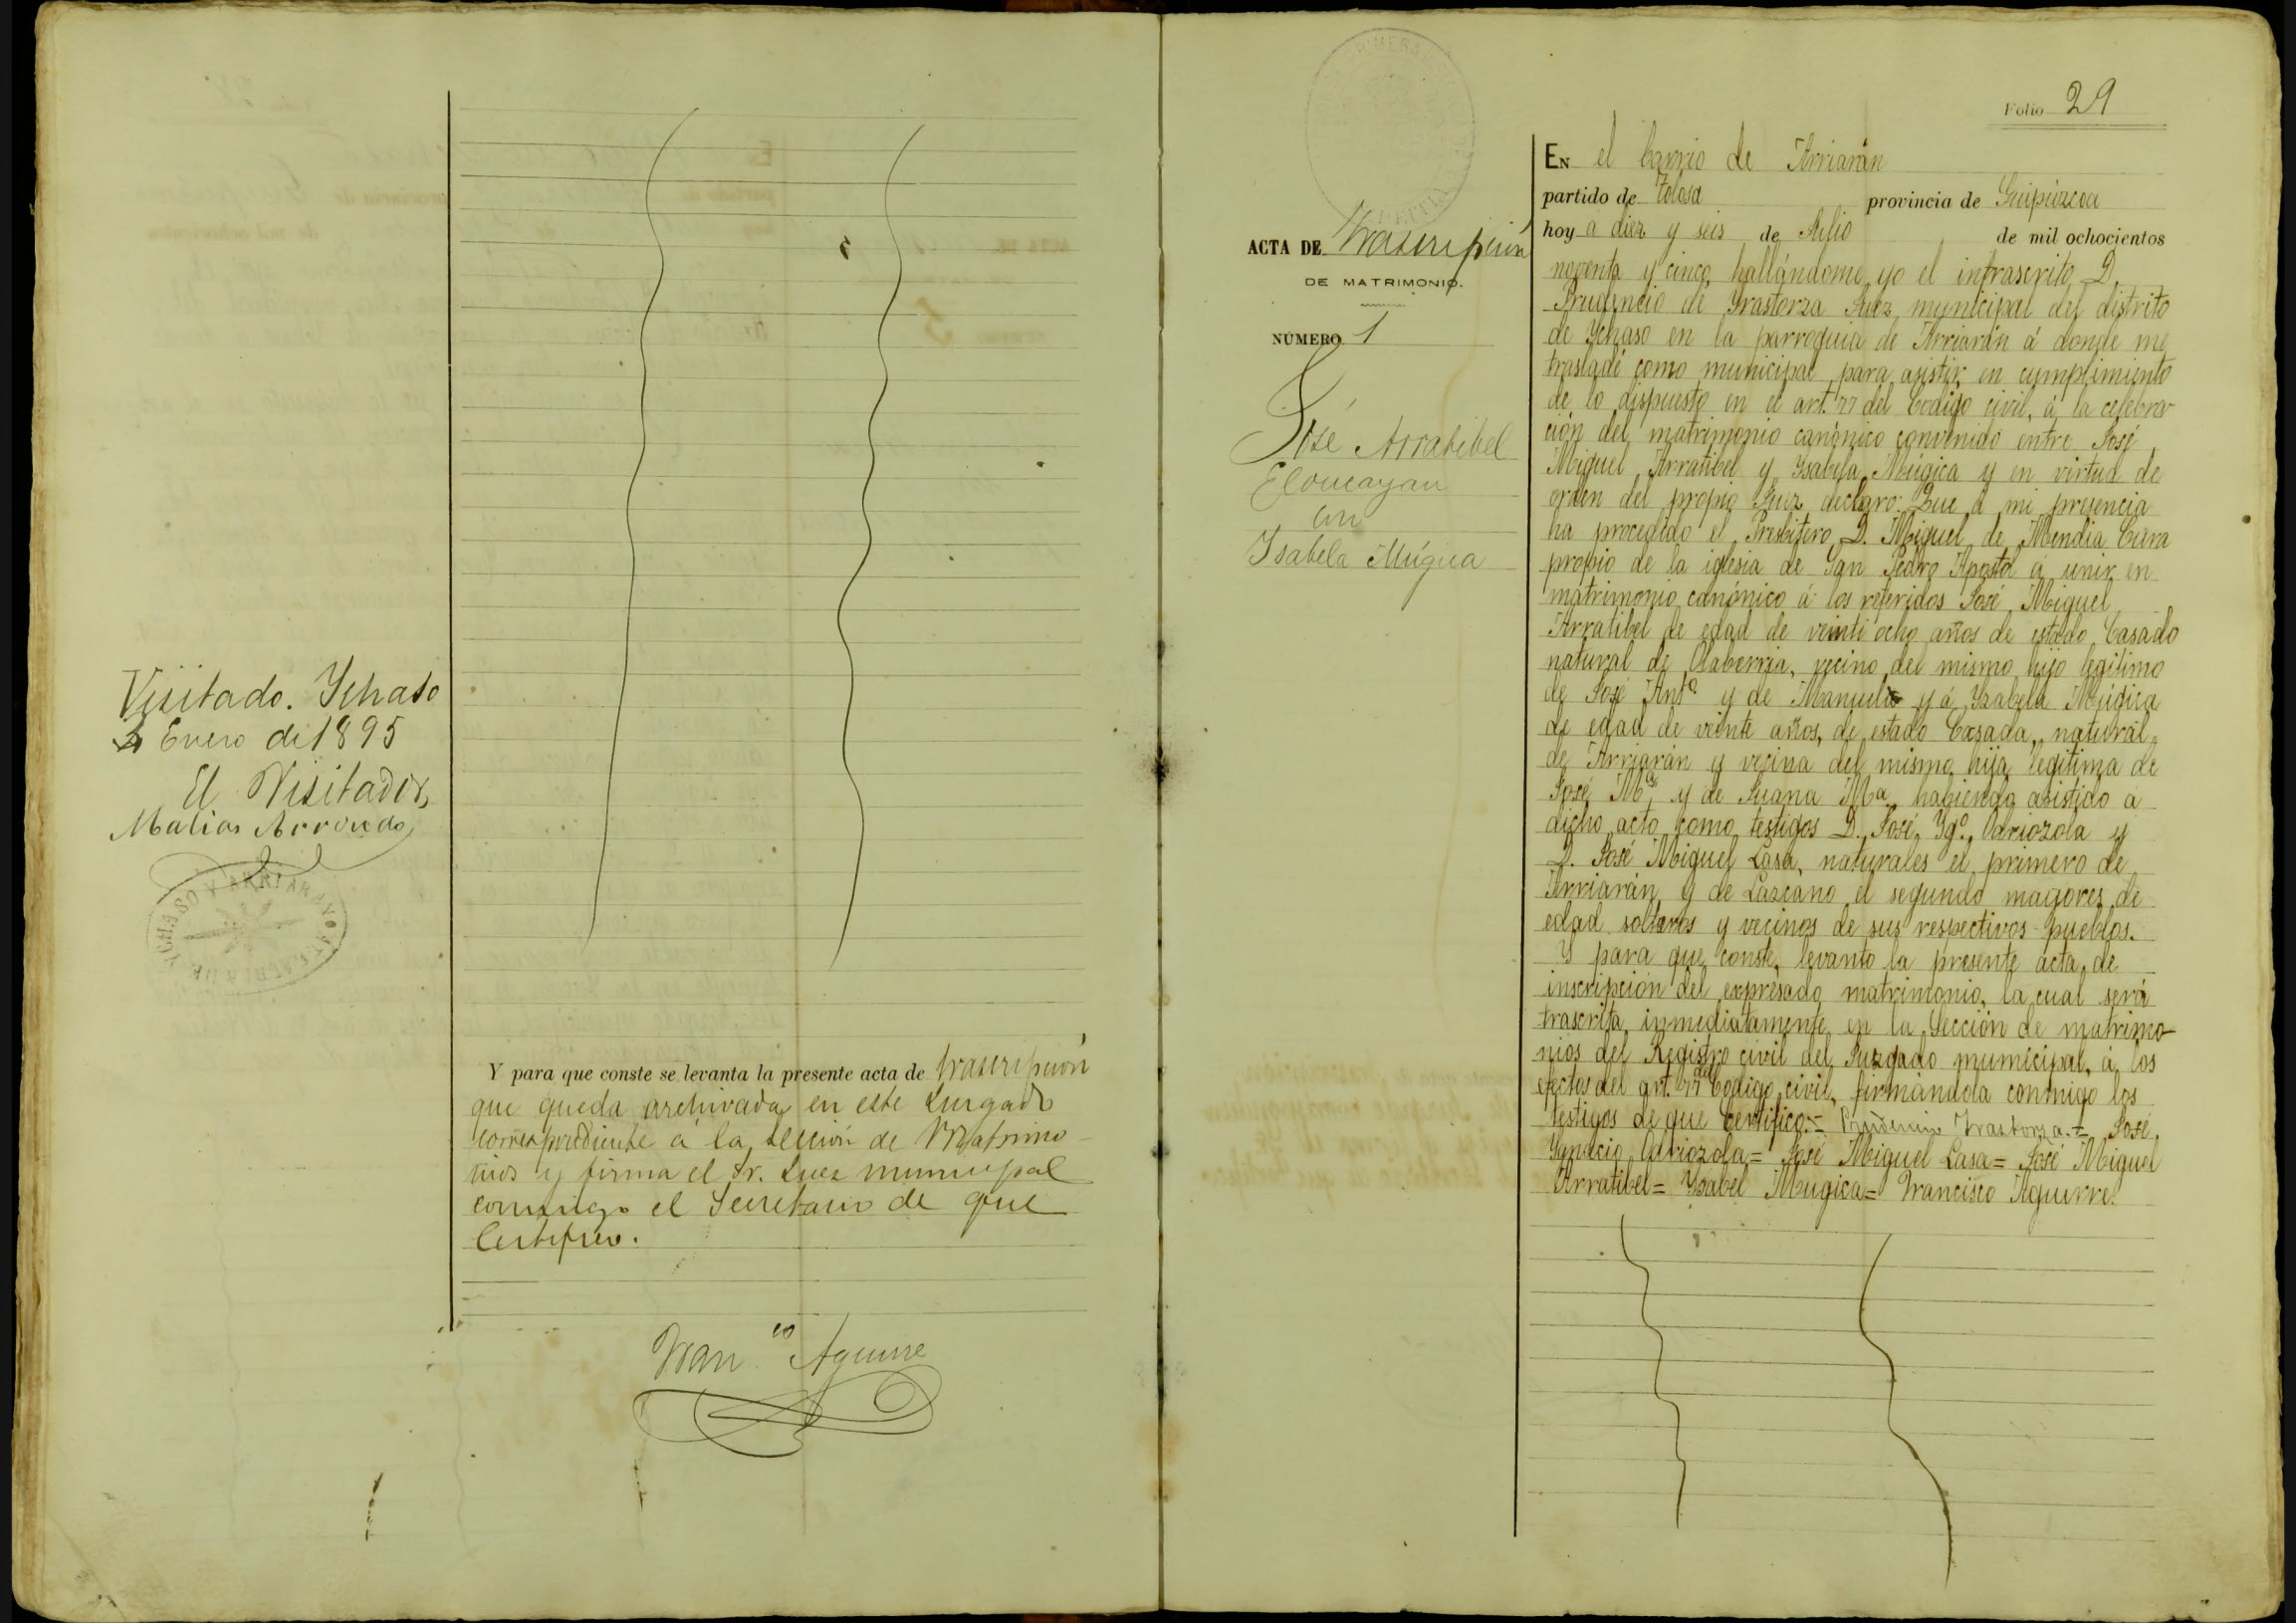 Visitado. Ychaso
2 Enero de 1895
El Visitador,
Matias Arrondo
YCHASO Y ARRIARAN
Y para que conste se levanta la presente acta de trascripción
que queda archivada en este Juzgado
correspondiente á la sección de Matrimo-
nios y firma el Sr. Juez municipal
conmigo el Secretario de que
Certifico.
Fran.co Aguirre
ACTA DE Trascripción
DE MATRIMONIO.
NÚMERO 1
José Arratibel
con
Ysabela Múgica
Folio 29
EN el barrio de Arriarán
partido de Tolosa provincia de Guipúzcoa
hoy a diez y seis de Julio de mil ochocientos
noventa y cinco, hallándome yo el infrascrito D.
Prudencio de Yrastorza Juez municipal del distrito
de Ychaso en la parroquia de Arriarán á donde me
trasladé como municipal para asistir en cumplimiento
de lo dispuesto en el art. 77 del Código civil, á la celebra-
ción del matrimonio canónico convenido entre José
Miguel Arratibel y Ysabela Múgica y en virtud de
orden del propio Juez declaro: Que á mi presencia
ha procedido el Presbítero D. Miguel de Mendia Cura
propio de la iglesia de San Pedro Apostol á unir en
matrimonio canónico á los referidos José Miguel
Arratibel de edad de veinti ocho años de estado Casado
natural de Olaberria, vecino del mismo hijo legítimo
de José Antº y de Manuela y á Ysabela Múgica
de edad de veinte años, de estado Casada, natural
de Arriarán y vecina del mismo hija legítima de
José Mª y de Juana Mª habiendo asistido a
dicho acto como testigos D. José Ygº Odriozola y
D. José Miguel Lasa, naturales el primero de
Arriarán y de Lazcano el segundo mayores de
edad solteros y vecinos de sus respectivos pueblos.
Y para que conste, levanto la presente acta de
inscripción del expresado matrimonio, la cual será
trascrita inmediatamente en la Sección de matrimo-
nios del Registro civil del Juzgado municipal, á los
efectos del art. 77 del Código civil, firmándola conmigo los
testigos de que Certifico.= Prudencio Yrastorza.= José
Ygnacio Odriozola= José Miguel Lasa= José Miguel
Arratibel= Ysabel Mugica= Francisco Aguirre.